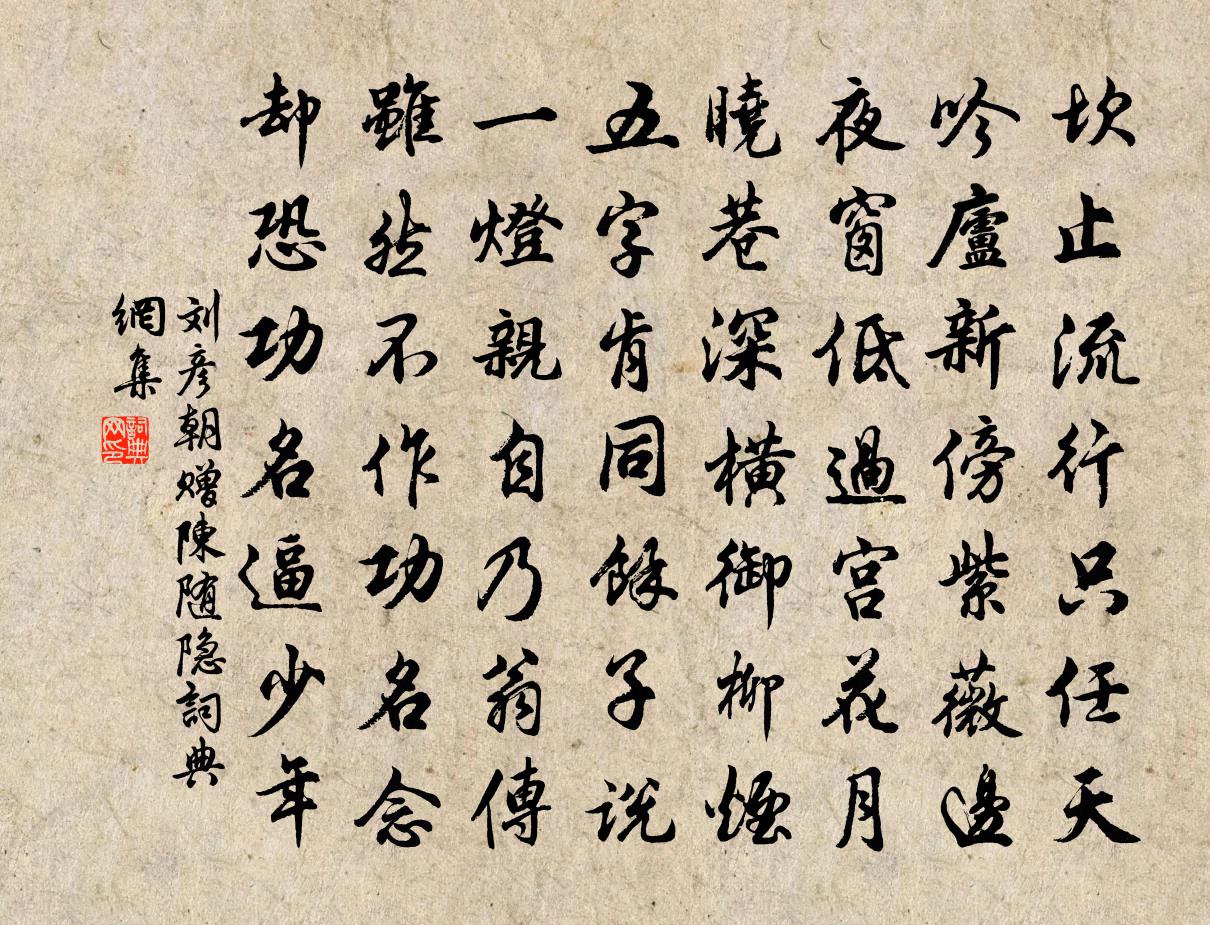 坎止流行只任天
吟廬新傍紫薇邊
夜窗低過宫花月
曉巷深橫御柳煙
五字肯同餘子說
一燈親自乃翁傳
雖然不作功名念
却恐功名逼少年
刘彦朝赠陳随隐詞典
網集
詞典網印